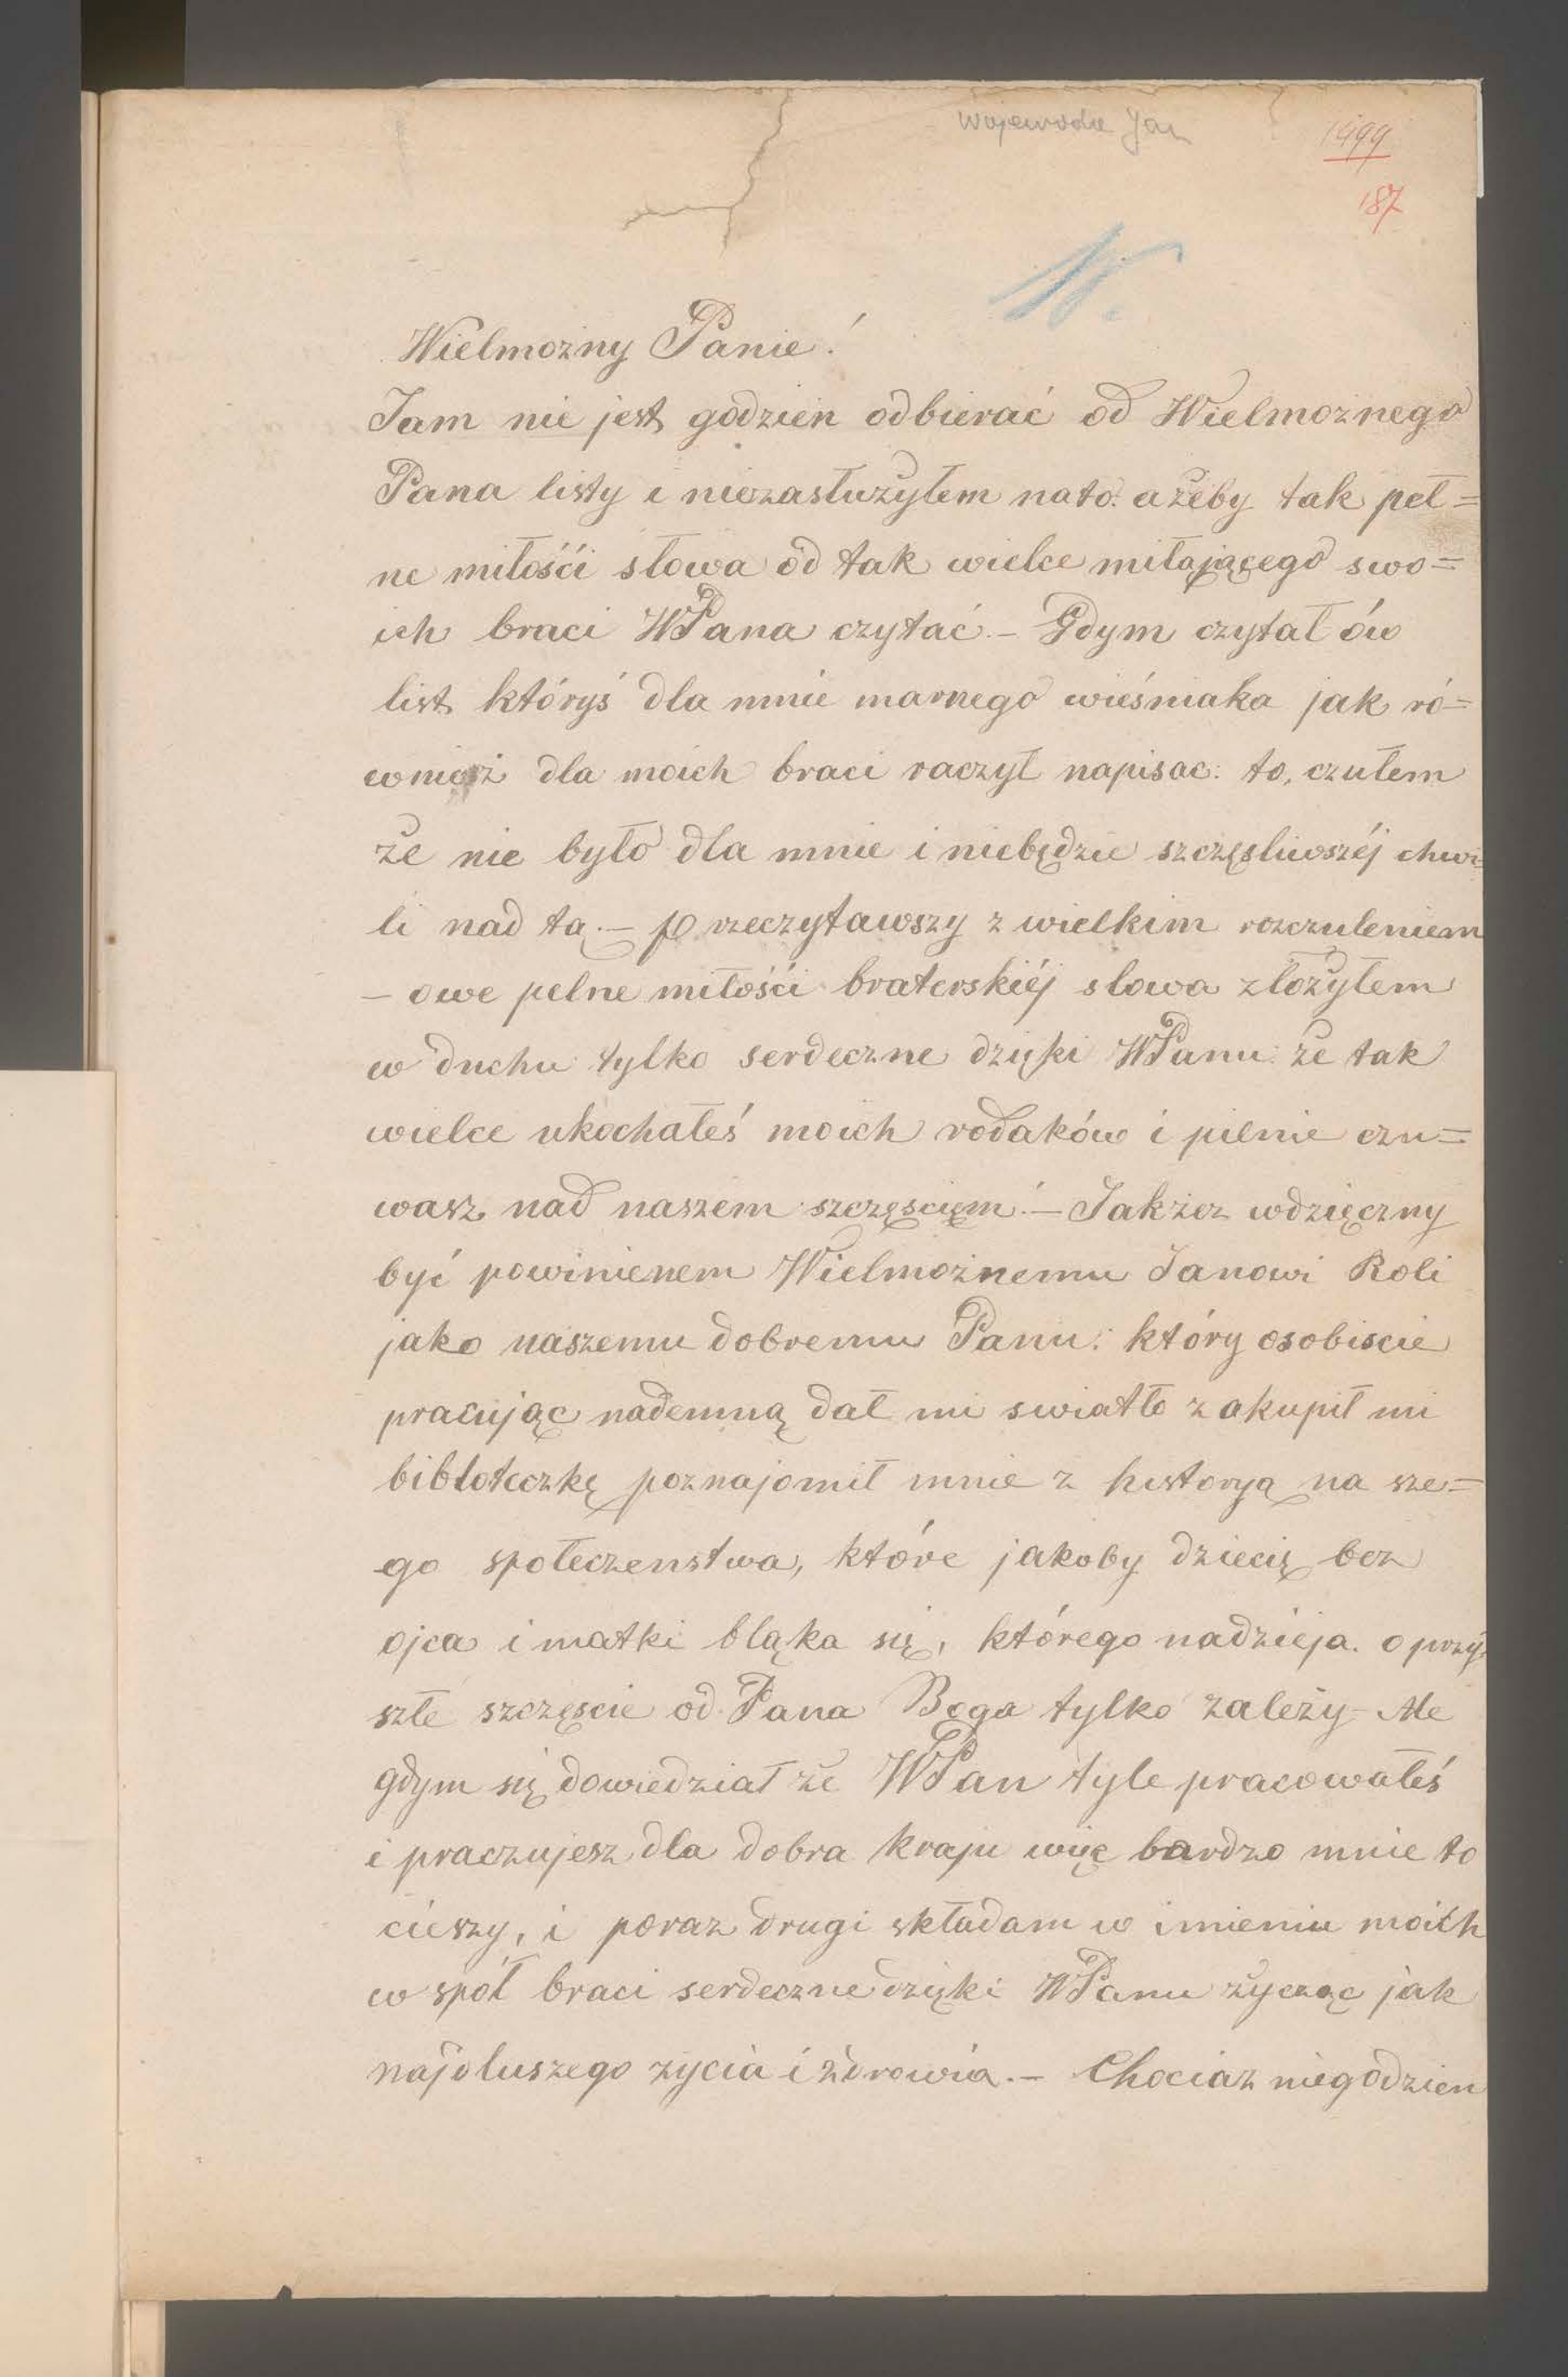 Wojewoda Jan
1499
187
W.
Wielmożny Panie!
Jam nie jest godzien odbierać od Wielmożnego
Pana listy i niezasłużyłem nato: ażeby tak peł=
ne miłośći słowa od tak wielce miłającego swo=
ich braci WPana czytać. – Gdym czytał ów
list któryś dla mnie marnego wieśniaka jak ró=
wnież dla moich braci raczył napisac: to, czułem
że nie było dla mnie i niebędzie szczęsliwszéj chwi=
li nad tą. – przeczytawszy z wielkim rozczuleniem
– owe pelne miłośći braterskiéj slowa złożyłem
w duchu tylko serdeczne dzięki WPanu: że tak
wielce ukochałeś moich rodaków i pilnie czu=
wasz nad naszem szczęsciem! – Jakżez wdzięczny
być powinienem Wielmożnemu Janowi Roli
jako naszemu dobremu Panu: który osobiscie
pracując nademną dał mi swiatło zakupił mi
bibloteczkę poznajomił mnie z historyą na sze=
go społeczenstwa, które jakoby dziecię bez
ojca i matki bląka się, którego nadzieja. o przy=
szłe szczęscie od Pana Boga tylko zależy – Ale
gdym się dowiedział że WPan tyle pracowałeś
i praczujesz dla dobra kraju więc bardzo mnie to
cieszy, i poraz drugi składam w imieniu moich
w spół braci serdeczne dzięki WPanu życząc jak
najdluszego życia i zdrowia. – Chociaz niegodzien